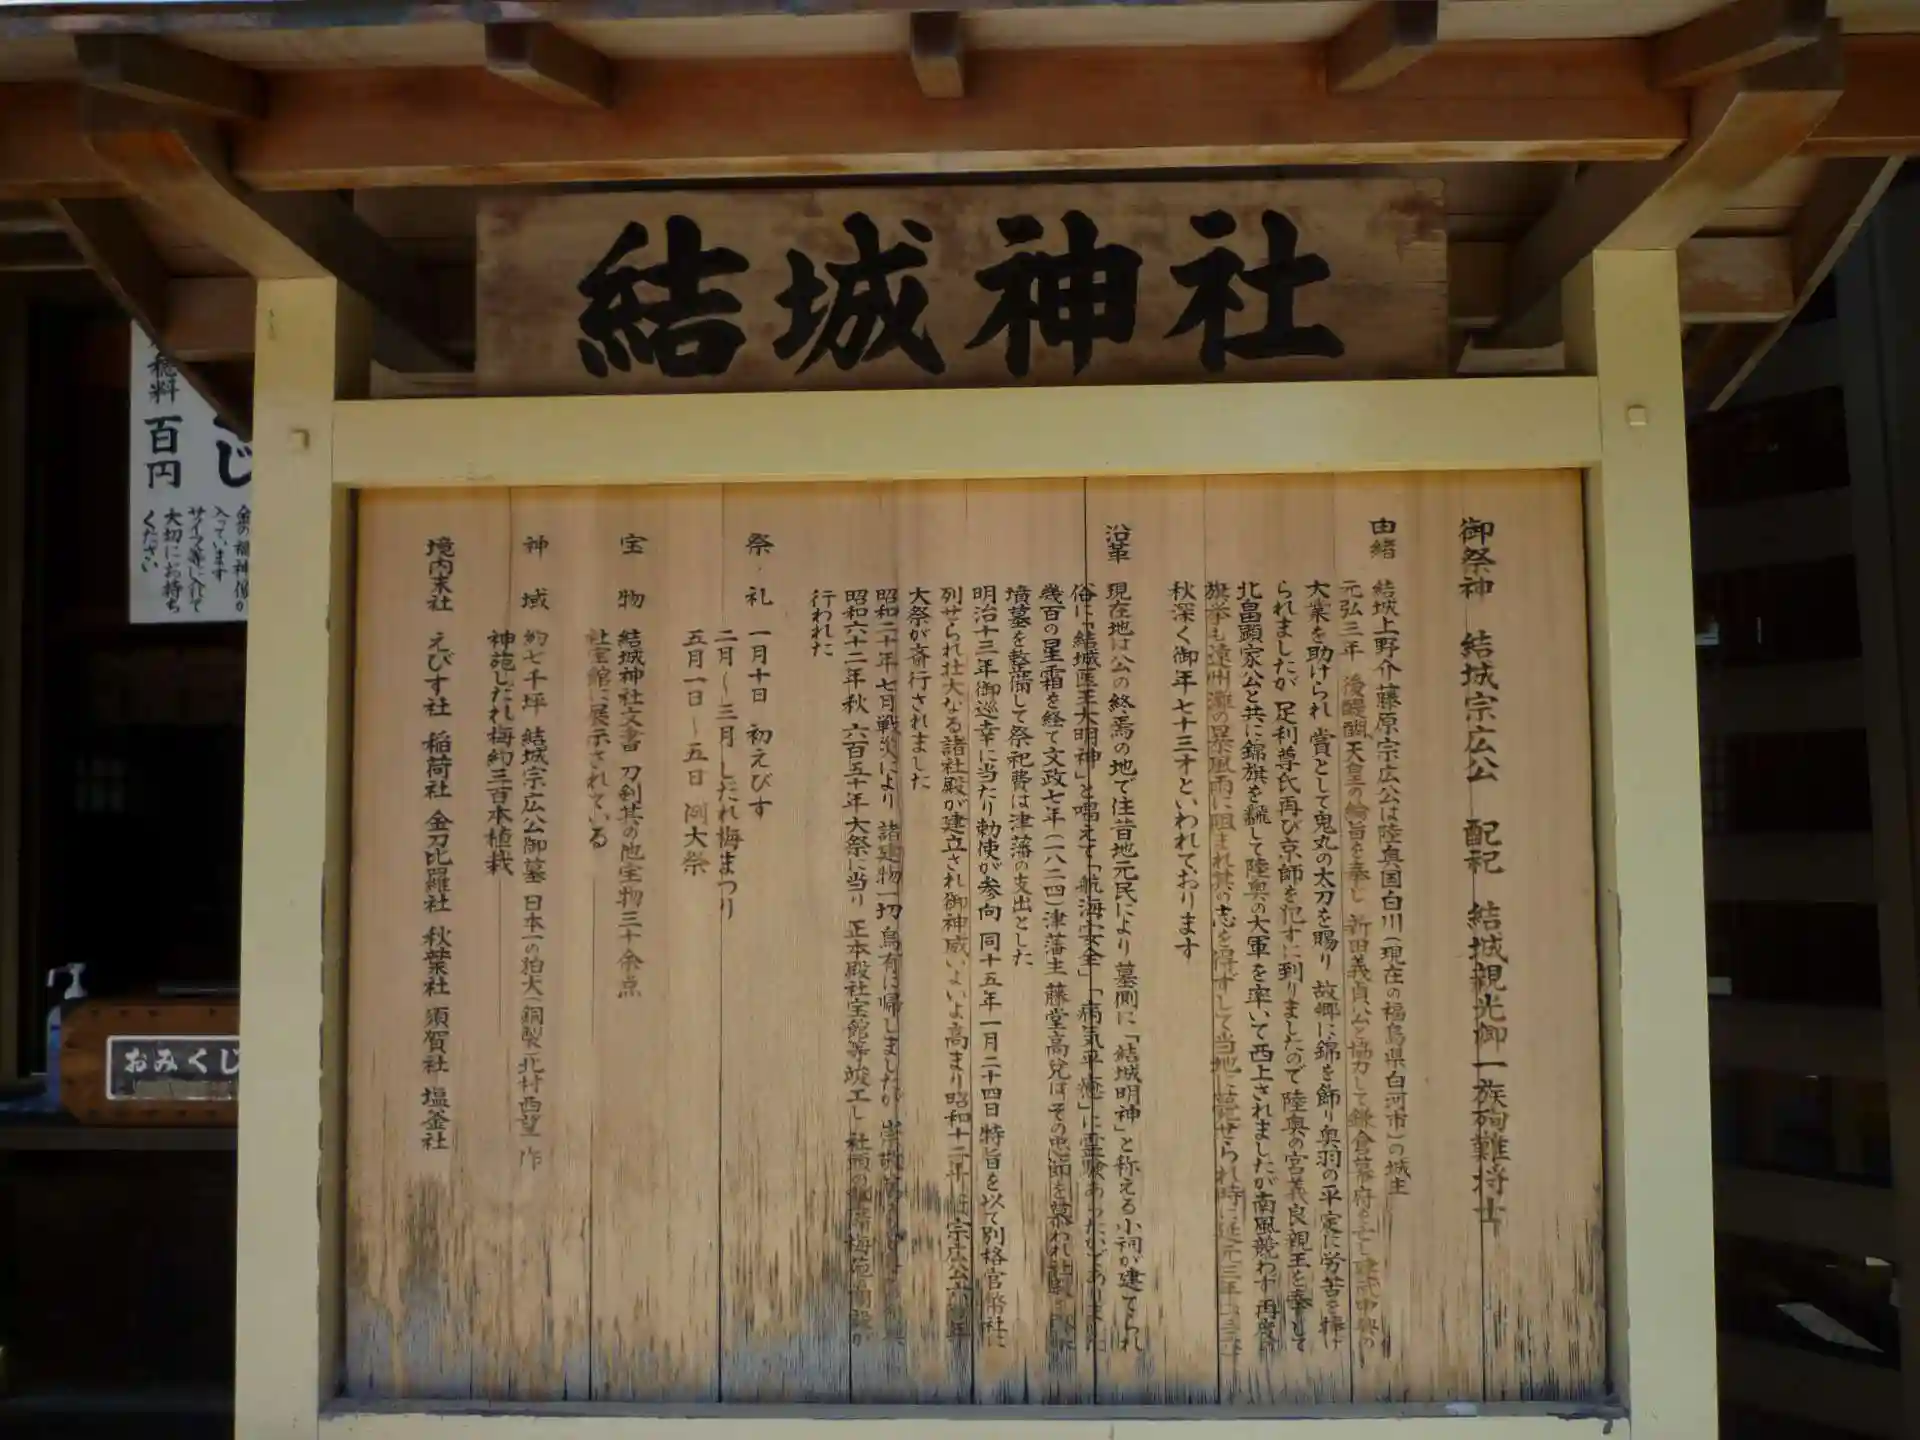 結城神社
御祭神 結城宗広公 配祀 結城親光御一族殉難将士
由緒 結城上野介藤原宗広公は陸奥国白川(現在の福島県白河市)の城主
元弘三年 後醍醐天皇の綸旨を奉し 新田義貞公と協力して鎌倉幕府を亡し建武中興の
大業を助けられ 賞として鬼丸の太刀を賜り 故郷に錦を飾り奥羽の平定に労苦を捧げ
られましたが 足利尊氏再び京師を犯すに到りましたので 陸奥の宮義良親王を奉じて
北畠顕家公と共に錦旗を飜して陸奥の大軍を率いて西上されましたが南風競わず 再度
旗挙も遠州灘の暴風雨に阻まれ其の志を得ずして当地に せられ時に延元三年
秋深く御年七十三才といわれております
沿革 現在地は公の終焉の地で往昔地元民により墓側に「結城明神」と称える小祠が建てられ
俗に「結城医王大明神」と唱えて「航海安全」「病気平癒」に霊験あったかでありました
幾百の星霜を経て文政七年(一八二四)津藩主 藤堂高兌はその忠節を慕われ社殿を
墳墓を整備して祭祀費は津藩の支出とした
明治十三年御巡幸に当たり勅使が参向 同十五年一月二十四日特旨を以て別格官幣社に
列せられ壮大なる諸社殿が建立され御神威いよいよ高まり昭和十二年 宗広公六百年
大祭が斎行されました
昭和二十年七月戦災により 諸建物一切 烏有に帰しましたが
昭和六十二年秋 六百五十年大祭に当り 正本殿社宝館等竣工し 梅苑開設が
行われた
祭礼 一月十日 初えびす
二月〜三月 しだれ梅まつり
五月一日〜五日 例大祭
宝物 結城神社文書 刀剣其の他宝物三十余点
社宝館に展示されている
神域 約七千坪 結城宗広公御墓 日本一の狛犬(銅製)北村西望 作
神苑しだれ梅約三百本植栽
境内末社 えびす社 稲荷社 金刀比羅社 秋葉社 須賀社 塩釜社
じ
穂料 百円
金の福神像が
入っています
サイフ等に入れて
大切にお持ち
ください
おみくじ